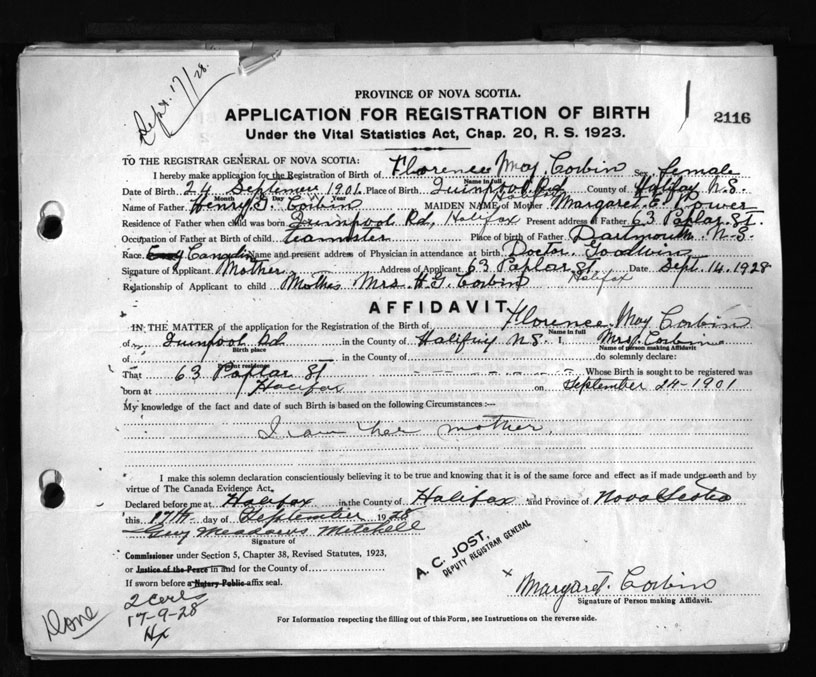 Sept. 17/28.
PROVINCE OF NOVA SCOTIA.
APPLICATION FOR REGISTRATION OF BIRTH
2116
Under the Vital Statistics Act, Chap. 20, R. S. 1923.
TO THE REGISTRAR GENERAL OF NOVA SCOTIA:
I hereby make application for the Registration of Birth of Florence May Corbin Sex female
Name in full
Date of Birth 24 September 1901 Place of Birth Quinpool Rd County of Halifax N.S.
Month Day Year Halifax
Name of Father Henry G. Corbin MAIDEN NAME of Mother Margaret E. Power
Residence of Father when child was born Quinpool Rd, Halifax Present address of Father 63 Poplar St.
Occupation of Father at Birth of child teamster Place of birth of Father Dartmouth N.S.
Race Canadian Name and present address of Physician in attendance at birth Doctor Goodwin
Signature of Applicant Mother Address of Applicant 63 Poplar St Halifax Date Sept. 14. 1928
Relationship of Applicant to child Mother Mrs H. G. Corbin
AFFIDAVIT
IN THE MATTER of the application for the Registration of the Birth of Florence May Corbin
Name in full
of Quinpool Rd in the County of Halifax N.S. I, Mrs Corbin
Birth place Name of person making Affidavit
of in the County of do solemnly declare:
Present residence
That 63 Poplar St Whose Birth is sought to be registered was
born at Halifax on September 24-1901
My knowledge of the fact and date of such Birth is based on the following Circumstances :—
I am her mother.
I make this solemn declaration conscientiously believing it to be true and knowing that it is of the same force and effect as if made under oath and by
virtue of The Canada Evidence Act.
Declared before me at Halifax in the County of Halifax and Province of Nova Scotia
this 17th day of September 1928
Guy Meadows Mitchell
Signature of
Commissioner under Section 5, Chapter 38, Revised Statutes, 1923,
or Justice of the Peace in and for the County of
If sworn before a Notary Public affix seal.
A. C. JOST,
DEPUTY REGISTRAR GENERAL
x Margaret Corbin
Signature of Person making Affidavit.
2 Certs
17-9-28
Hx
Done
For Information respecting the filling out of this Form, see Instructions on the reverse side.